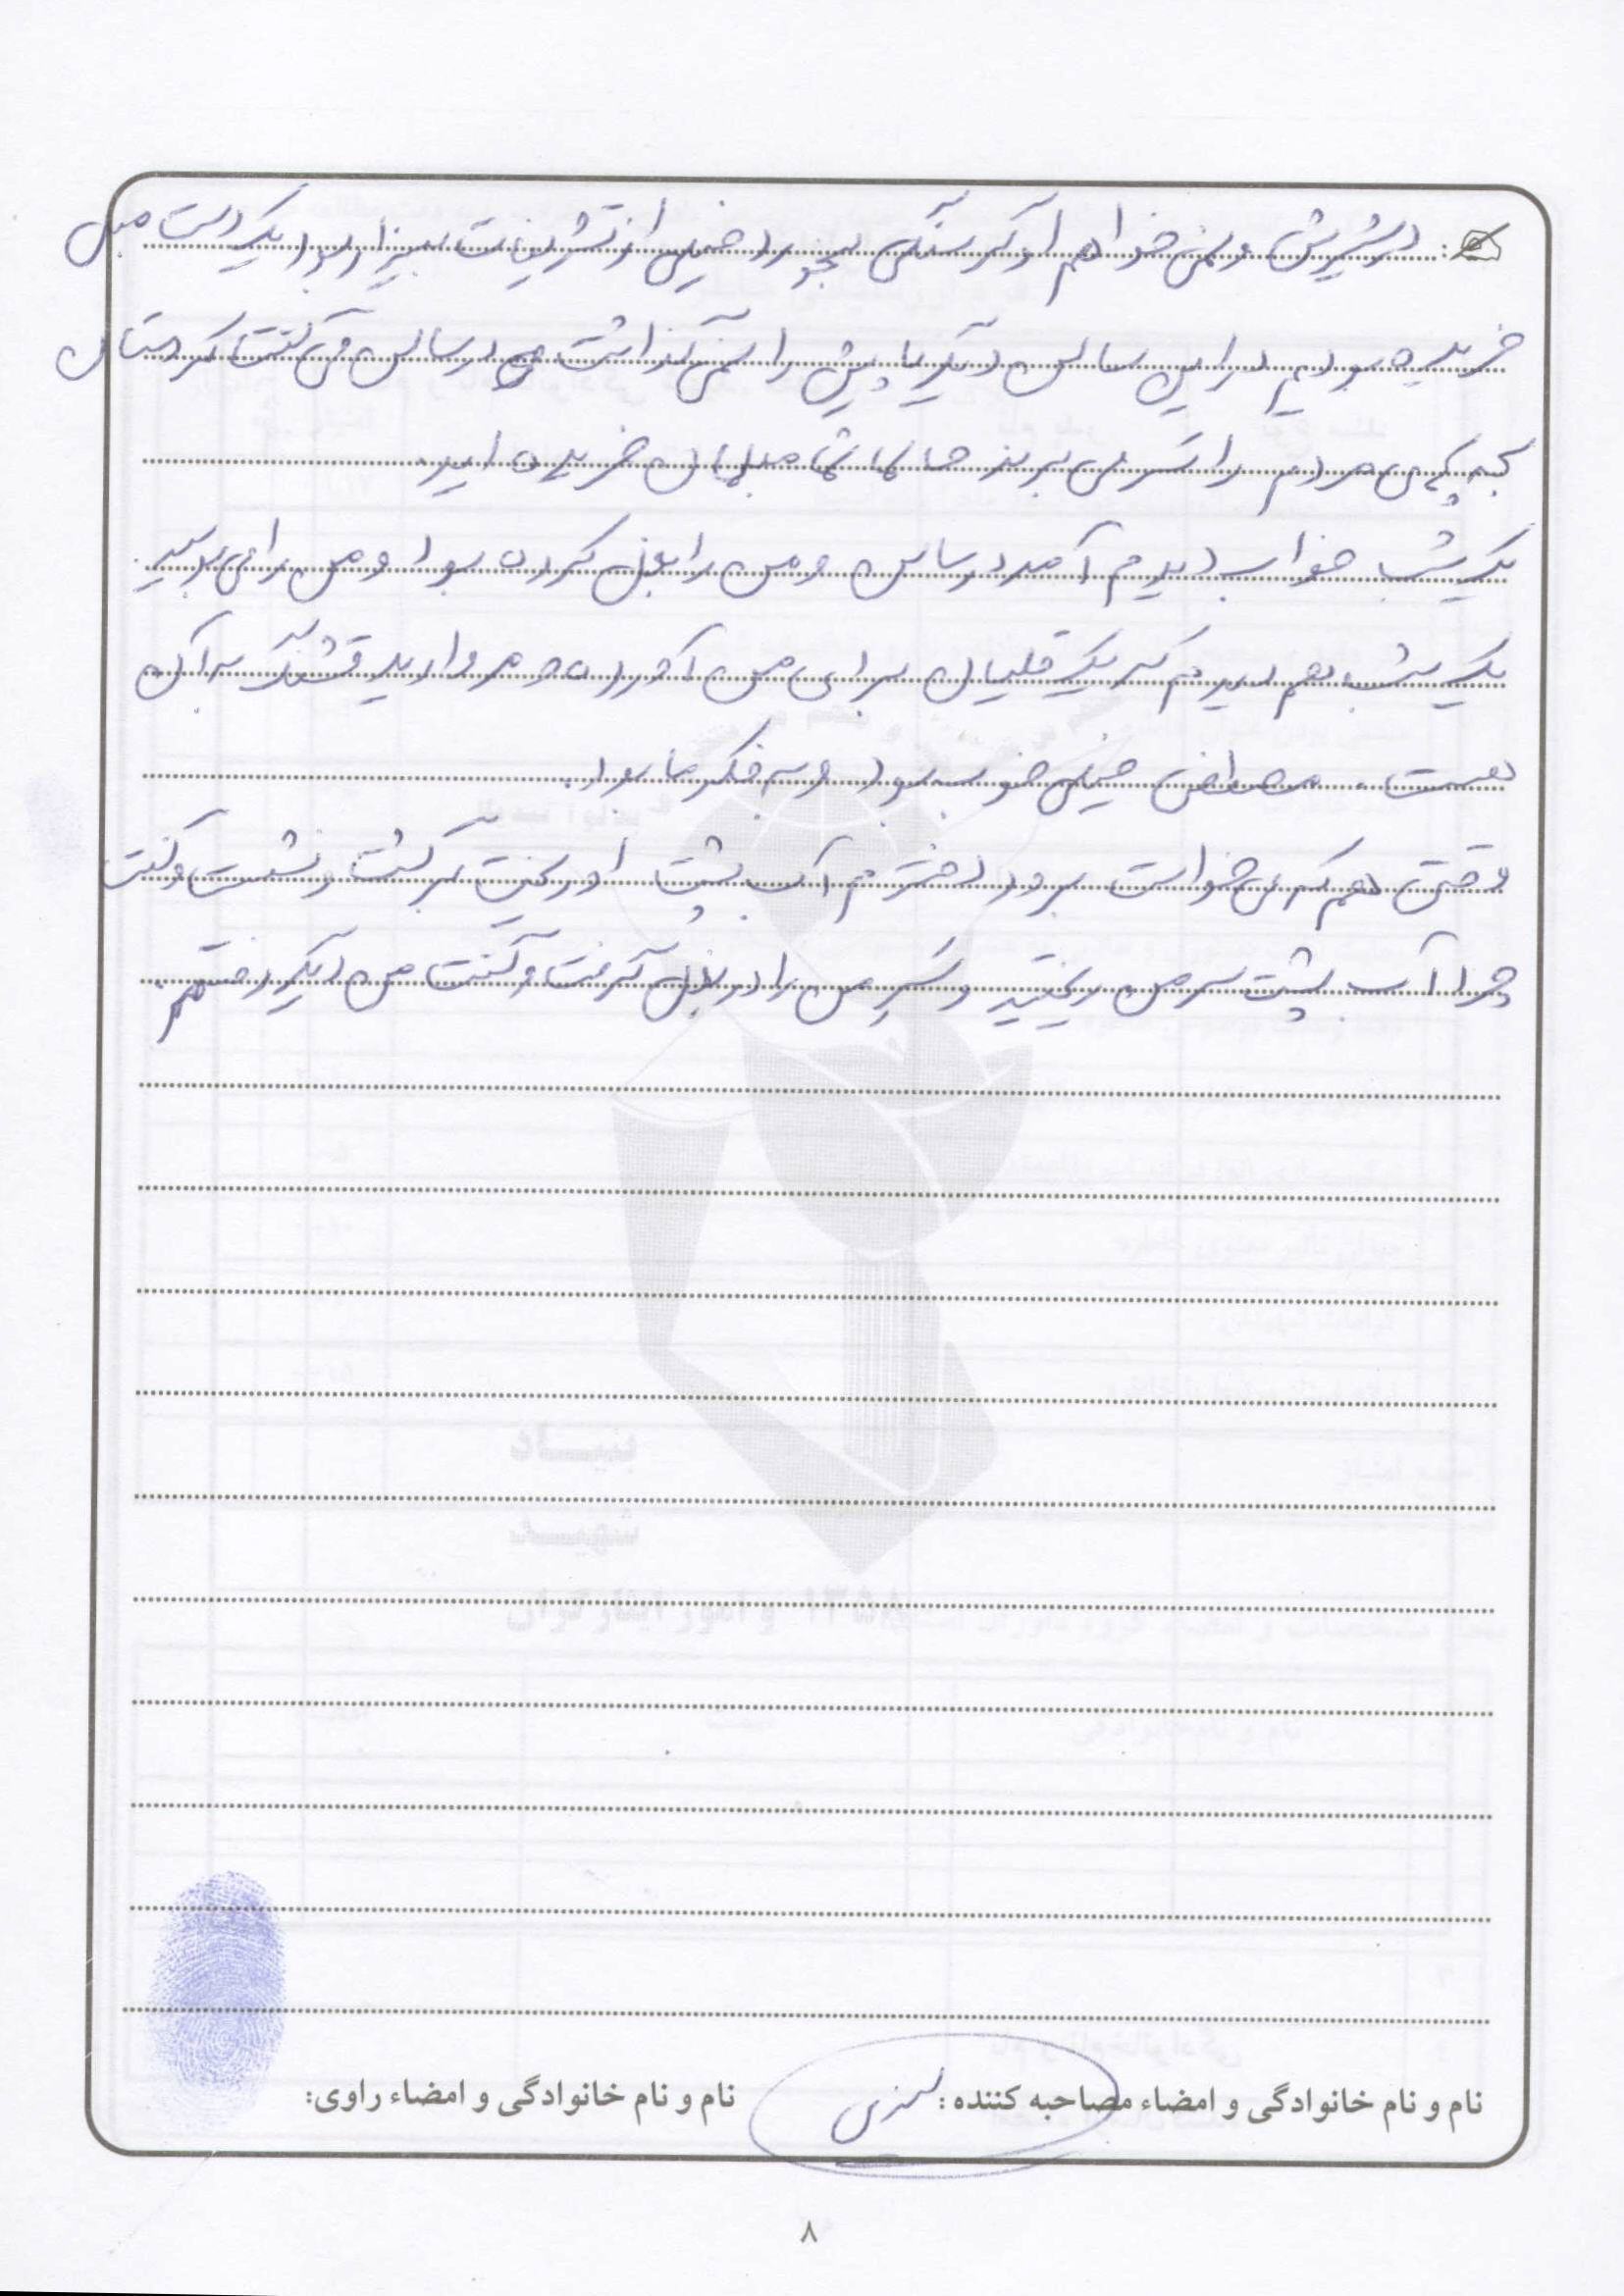 در شیرش و نمی خواهم او گرسنگی بخورد خیلی از تشریفات بیزار بود یک دست مبل
خریده بودیم در این سالن دیگر پایش را نمی گذاشت در سالن می گفت کردستان
بچه های مردم را سر می برند حالا شما مبلمان خریده اید.
یک شب خواب دیدم آمد در سالن و من را بغل کرده بود و من را می بوسید.
یک شب هم دیدم که یک قلیان برای من آورده و مروارید قشنگ به آن
هست. مصطفی خیلی خوب بود و به فکر ما بود.
وقتی هم که می خواست برود دخترم آب پشت او ریخت برگشت و نشست و گفت
چرا آب پشت سر من ریختید و سر من را در بغل گرفت و گفت من دیگر رفتم.
نام و نام خانوادگی و امضاء مصاحبه کننده:
نام و نام خانوادگی و امضاء راوی:
۸